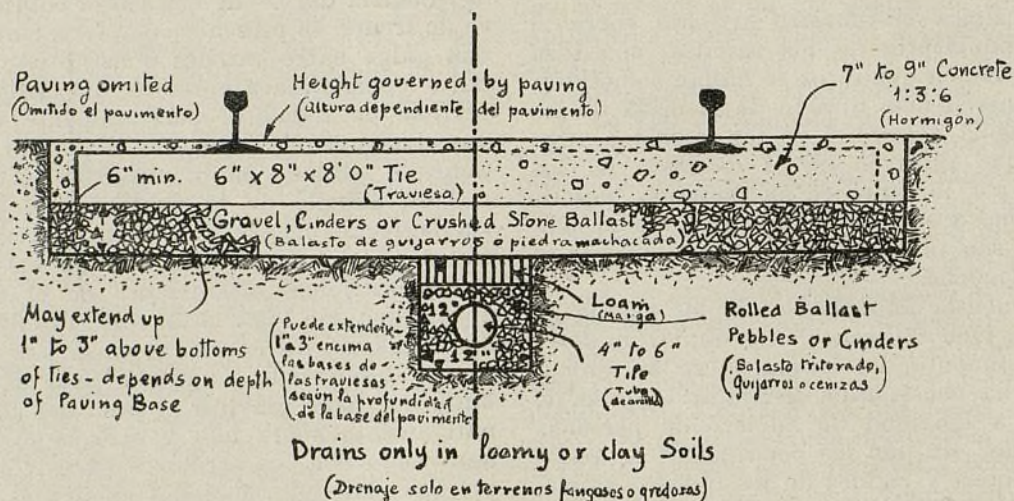 Paving omited
(Omitido el pavimento)
Height governed by paving
(Altura dependiente del pavimento)
7" to 9" Concrete
1:3:6
(Hormigón)
6" min. 6" x 8" x 8' 0" Tie
(Traviesa)
Gravel, Cinders or Crushed Stone Ballast
(Balasto de guijarros ó piedra machacada)
May extend up
1" to 3" above bottoms
of Ties - depends on depth
of Paving Base
(Puede extenderse
1" a 3" encima
las bases de
las traviesas
según la profundidad
de la base del pavimento)
12"
12"
Loam
(Marga)
4" to 6"
Tile
(Tubo
de arcilla)
Rolled Ballast
Pebbles or Cinders
(Balasto triturado,
guijarros o cenizas)
Drains only in loamy or clay Soils
(Drenaje solo en terrenos fangosos o gredosos)